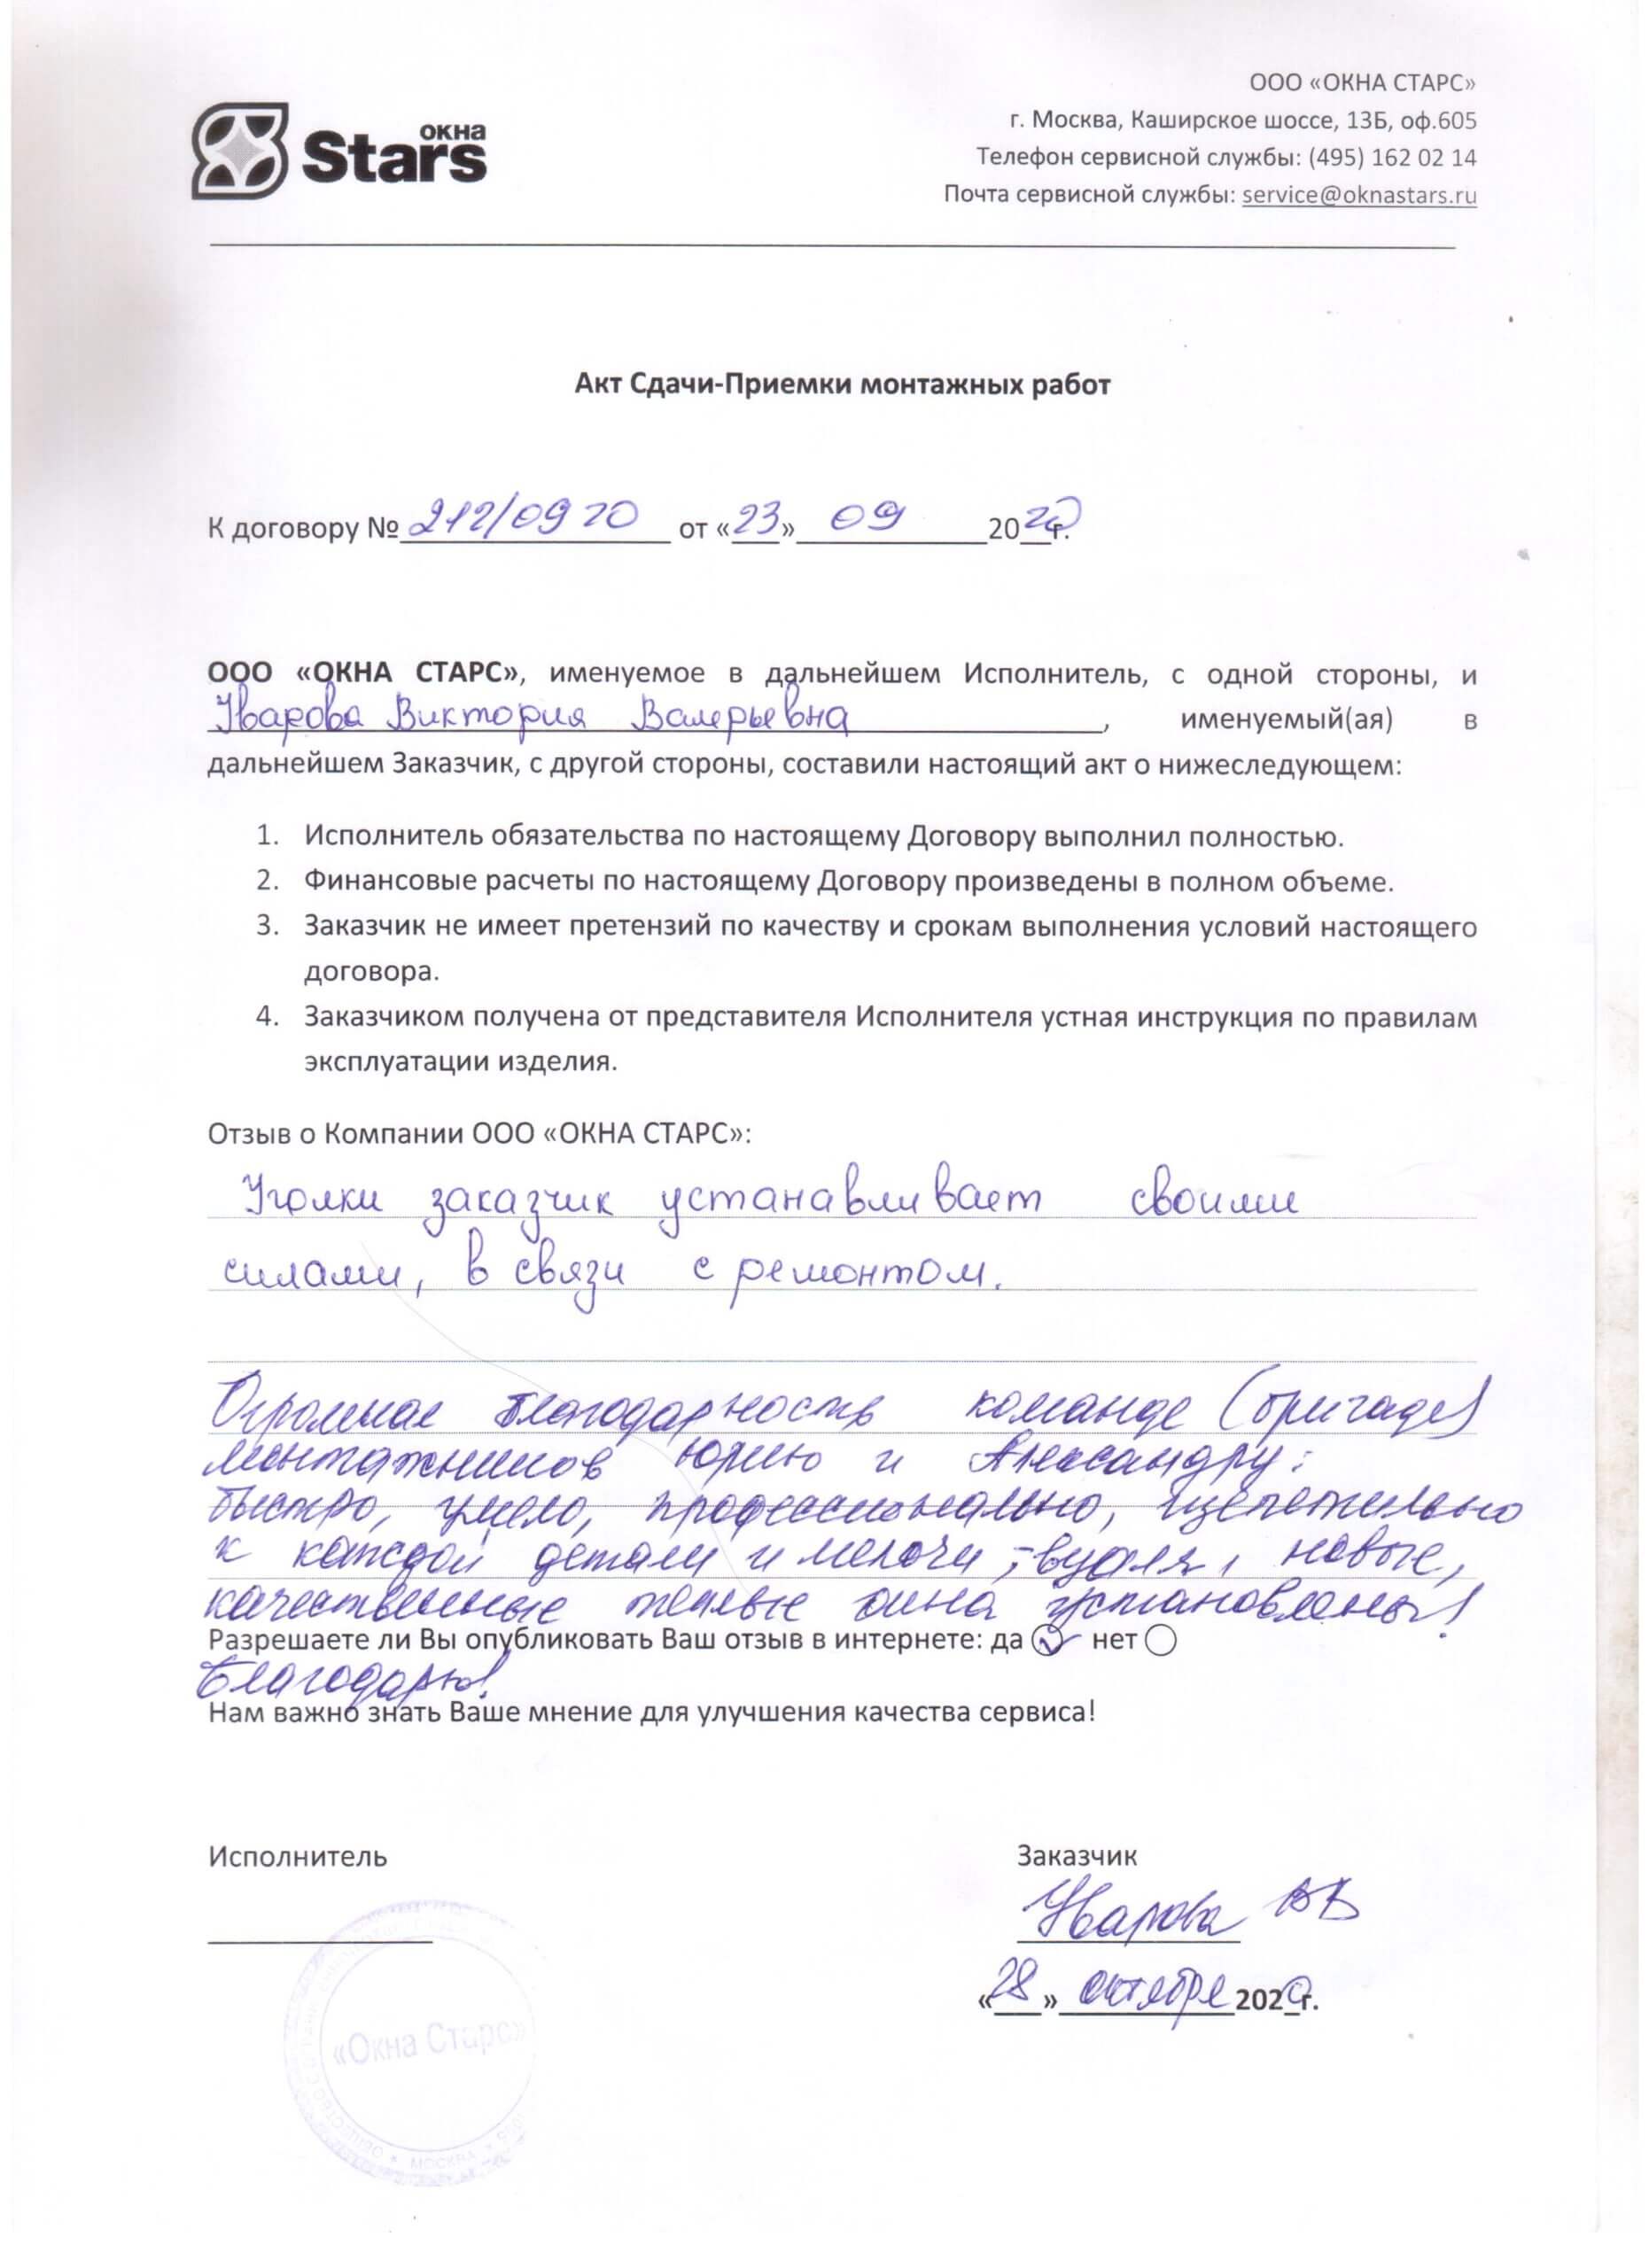 окна
Stars
ООО «ОКНА СТАРС»
г. Москва, Каширское шоссе, 13Б, оф.605
Телефон сервисной службы: (495) 162 02 14
Почта сервисной службы: service@oknastars.ru
Акт Сдачи-Приемки монтажных работ
К договору № 212/0920 от «23» 09 2020г.
ООО «ОКНА СТАРС», именуемое в дальнейшем Исполнитель, с одной стороны, и
Уварова Виктория Валерьевна, именуемый(ая) в
дальнейшем Заказчик, с другой стороны, составили настоящий акт о нижеследующем:
1. Исполнитель обязательства по настоящему Договору выполнил полностью.
2. Финансовые расчеты по настоящему Договору произведены в полном объеме.
3. Заказчик не имеет претензий по качеству и срокам выполнения условий настоящего
договора.
4. Заказчиком получена от представителя Исполнителя устная инструкция по правилам
эксплуатации изделия.
Отзыв о Компании ООО «ОКНА СТАРС»:
Уголки заказчик устанавливает своими
силами, в связи с ремонтом.
Огромная благодарность команде (бригаде)
монтажников Юрию и Александру:
быстро, умело, профессионально, щепетильно
к каждой детали и мелочи, - вуаля, новые,
качественные теплые окна установлены!
Разрешаете ли Вы опубликовать Ваш отзыв в интернете: да нет
Благодарю!
Нам важно знать Ваше мнение для улучшения качества сервиса!
Исполнитель
Заказчик
Уварова ВВ
«28» октября 2020г.
«Окна Старс»
МОСКВА